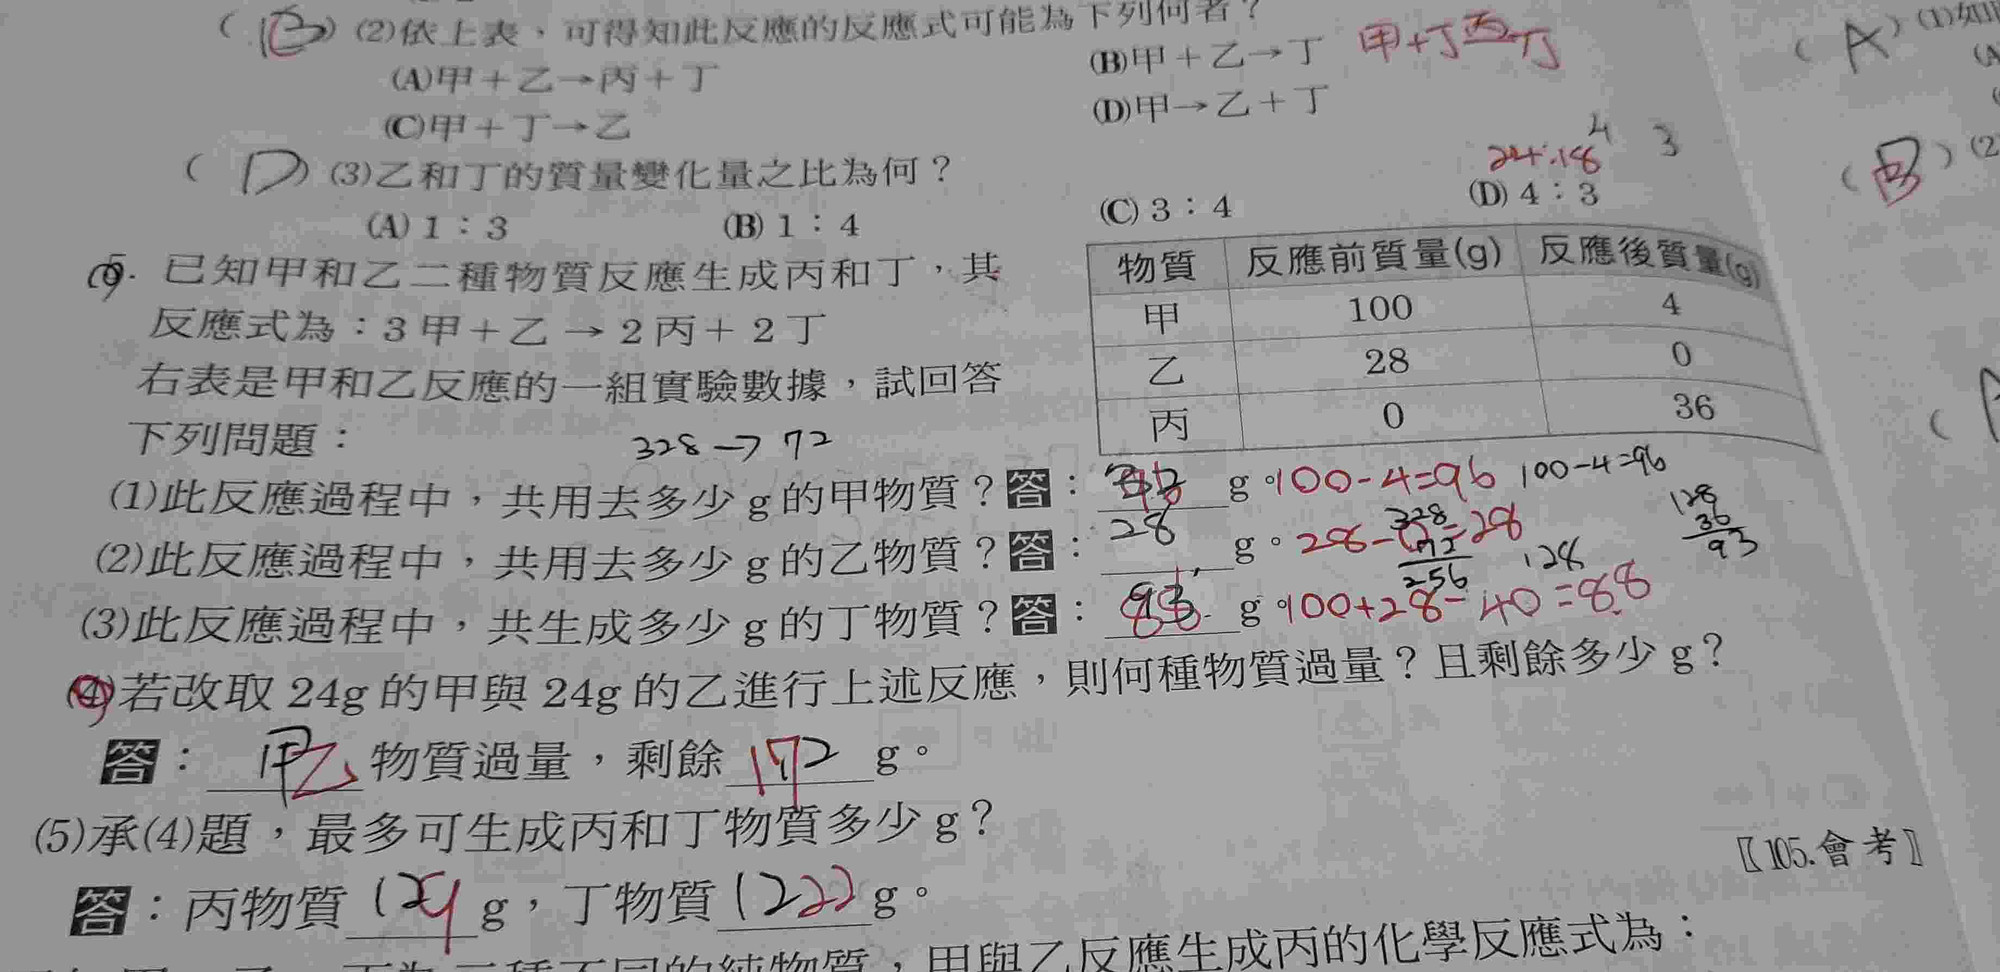 (2)依上表，可得知此反應的反應式可能為下列何者？
(A)甲＋乙→丙＋丁
(B)甲＋乙→丁
甲+丁
(C)甲＋丁→乙
(D)甲→乙＋丁
( D ) (3)乙和丁的質量變化量之比為何？
24:18 4 3
(A) 1：3 (B) 1：4 (C) 3：4 (D) 4：3
已知甲和乙二種物質反應生成丙和丁，其
反應式為：3甲＋乙→2丙＋2丁
右表是甲和乙反應的一組實驗數據，試回答
下列問題：
328→72
物質 反應前質量(g) 反應後質量(g)
甲 100 4
乙 28 0
丙 0 36
(1)此反應過程中，共用去多少g的甲物質？答： g。100-4=96 100-4=96
(2)此反應過程中，共用去多少g的乙物質？答：28 g。
328
72
256
128
36
93
128
(3)此反應過程中，共生成多少g的丁物質？答：88 g。100+28-40=88
(4)若改取24g的甲與24g的乙進行上述反應，則何種物質過量？且剩餘多少g？
答：甲乙物質過量，剩餘17 g。
(5)承(4)題，最多可生成丙和丁物質多少g？
〖105.會考〗
答：丙物質 g，丁物質 g。
甲與乙反應生成丙的化學反應式為：
( A ) (1)如
( B ) (2